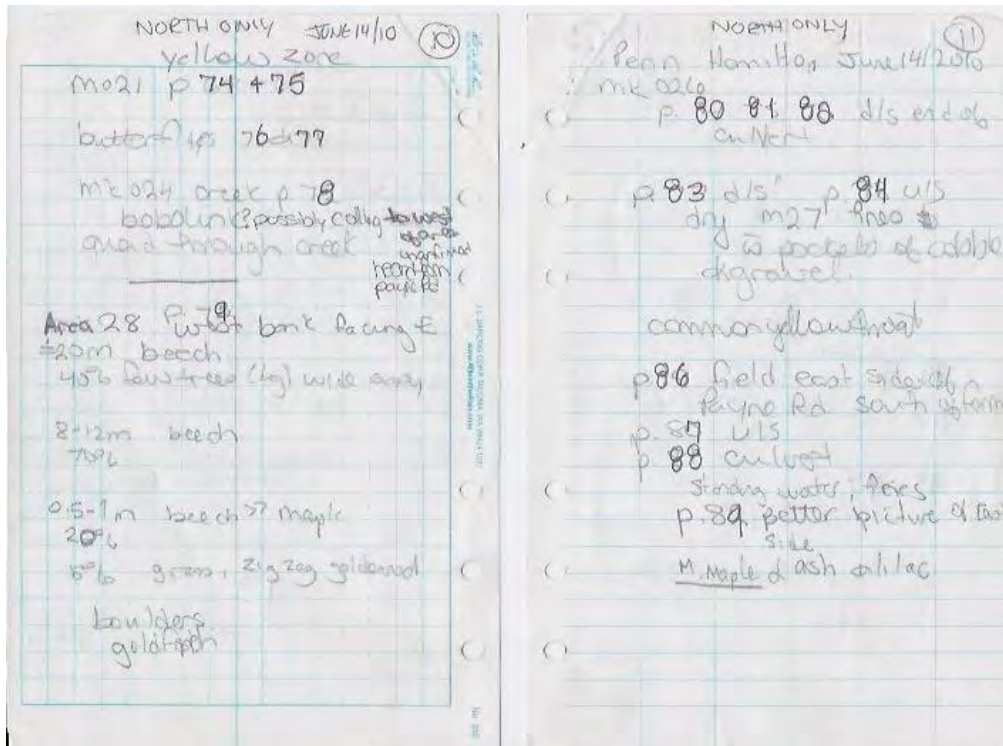 NORTH ONLY JUNE 14/10 10
yellow zone
m021 p 74 + 75
butterflies 76 & 77
mk 024 creek p 78
bobolink? possibly calling to west
quad through creek
heard from
payne Rd
p 79
Area 28 west bank facing E
20m beech
45% few trees (lg) wide
8-12m beech
0.5-1m beech >> maple
20%
5% grass, zigzag goldenrod
boulders
goldfinch
NORTH ONLY 11
Penn Hamilton June 14/2010
mk 026
p. 80 81 88 d/s end of
culvert
p. 83 d/s p. 84 u/s
dry m27
w pockets of cobble
& gravel.
common yellowthroat
p 86 field east side of
Payne Rd south of farm
p. 87 u/s
p. 88 culvert
standing water,
p. 89 better picture of East
side
M. Maple & ash & lilac